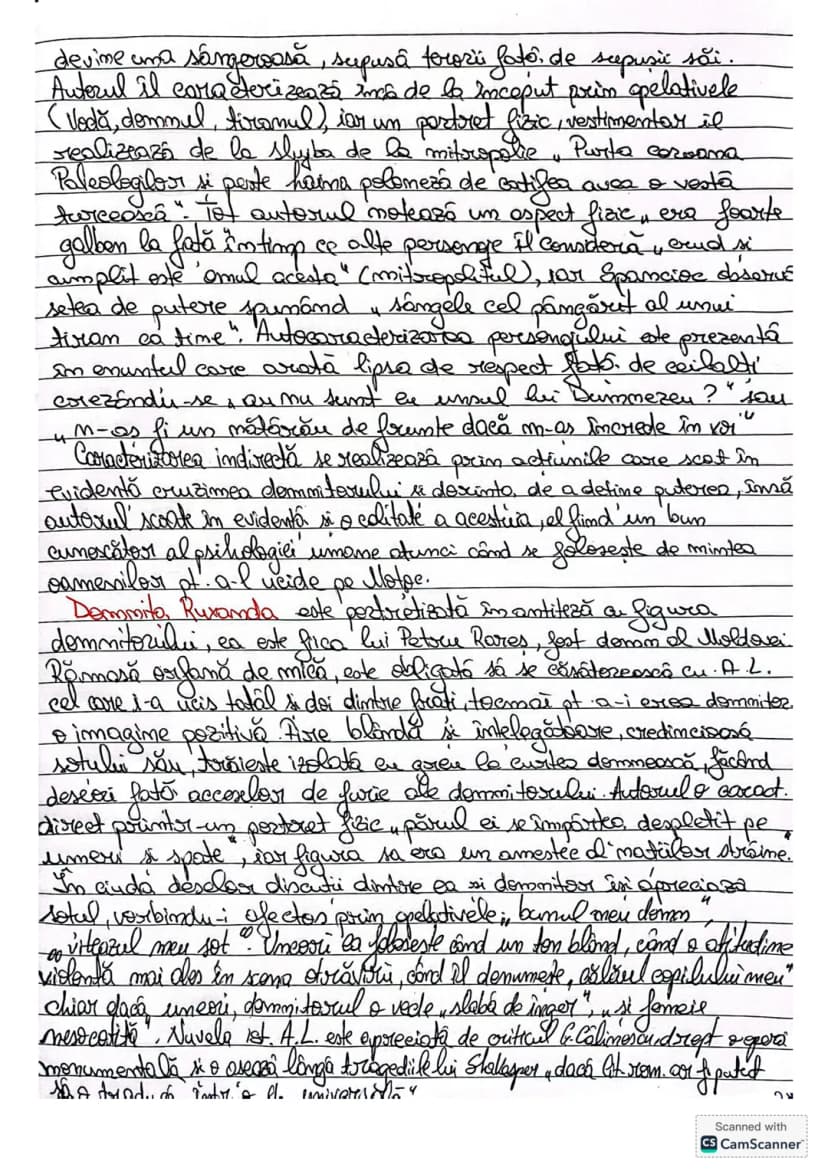 devine una sângeroasă, supusă terorii față de supușii săi.
Autorul îl caracterizează încă de la început prin apelativele
(Vodă, domnul, tiranul), iar un portret fizic, vestimentar îl
realizează de la slujba de la mitropolie „Purta coroana
Paleologilor și peste haina poloneză de catifea avea o vestă
turcească". Tot autorul notează un aspect fizic „era foarte
galben la față în timp ce alte personaje îl consideră „crud și
cumplit este omul acesta" (mitropolitul), iar Spancioc observă
setea de putere spunând „sângele cel pângărit al unui
tiran ca tine". Autocaracterizarea personajului este prezentă
în enunțul care arată lipsa de respect față de ceilalți
crezându-se „au nu sunt eu unsul lui Dumnezeu?" sau
„n-aș fi un nătărău de frunte dacă m-aș încrede în voi"
Caracterizarea indirectă se realizează prin acțiunile care scot în
evidență cruzimea domnitorului și dorința de a deține puterea, însă
autorul scoate în evidență și o calitate a acestuia, el fiind un bun
cunoscător al psihologiei umane atunci când se folosește de mintea
oamenilor pt. a-l ucide pe Moțoc.
Domnița Ruxanda este portretizată în antiteză cu figura
domnitorului, ea este fiica lui Petru Rareș, fost domn al Moldovei.
Rămasă orfană de mică, este obligată să se căsătorească cu A.L.
cel care i-a ucis tatăl și doi dintre frați, tocmai pt. a-i crea domnitor.
o imagine pozitivă. Fire blândă și înțelegătoare, credincioasă
soțului său, trăiește izolată cu greu la curtea domnească, făcând
deseori față acceselor de furie ale domnitorului. Autorul o caract.
direct printr-un portret fizic „părul ei se împărțea despletit pe
umeri și spate", iar figura sa era un amestec al națiilor străine.
În ciuda deselor discuții dintre ea și domnitor își apreciază
soțul, vorbindu-i afectos prin apelativele „bunul meu domn",
„viteazul meu soț". Uneori ea folosește când un ton blând, când o atitudine
violentă mai ales în scena otrăvirii, când îl denumește „călăul copilului meu"
chiar dacă uneori, domnitorul o vede „slabă de înger", „și femeie
nesocotită". Nuvela ist. A.L. este apreciată de criticul G. Călinescu drept o operă
monumentală și o așează lângă tragediile lui Shakesper „dacă lit. rom. ar fi putut
să o traducă într-o l. universală"